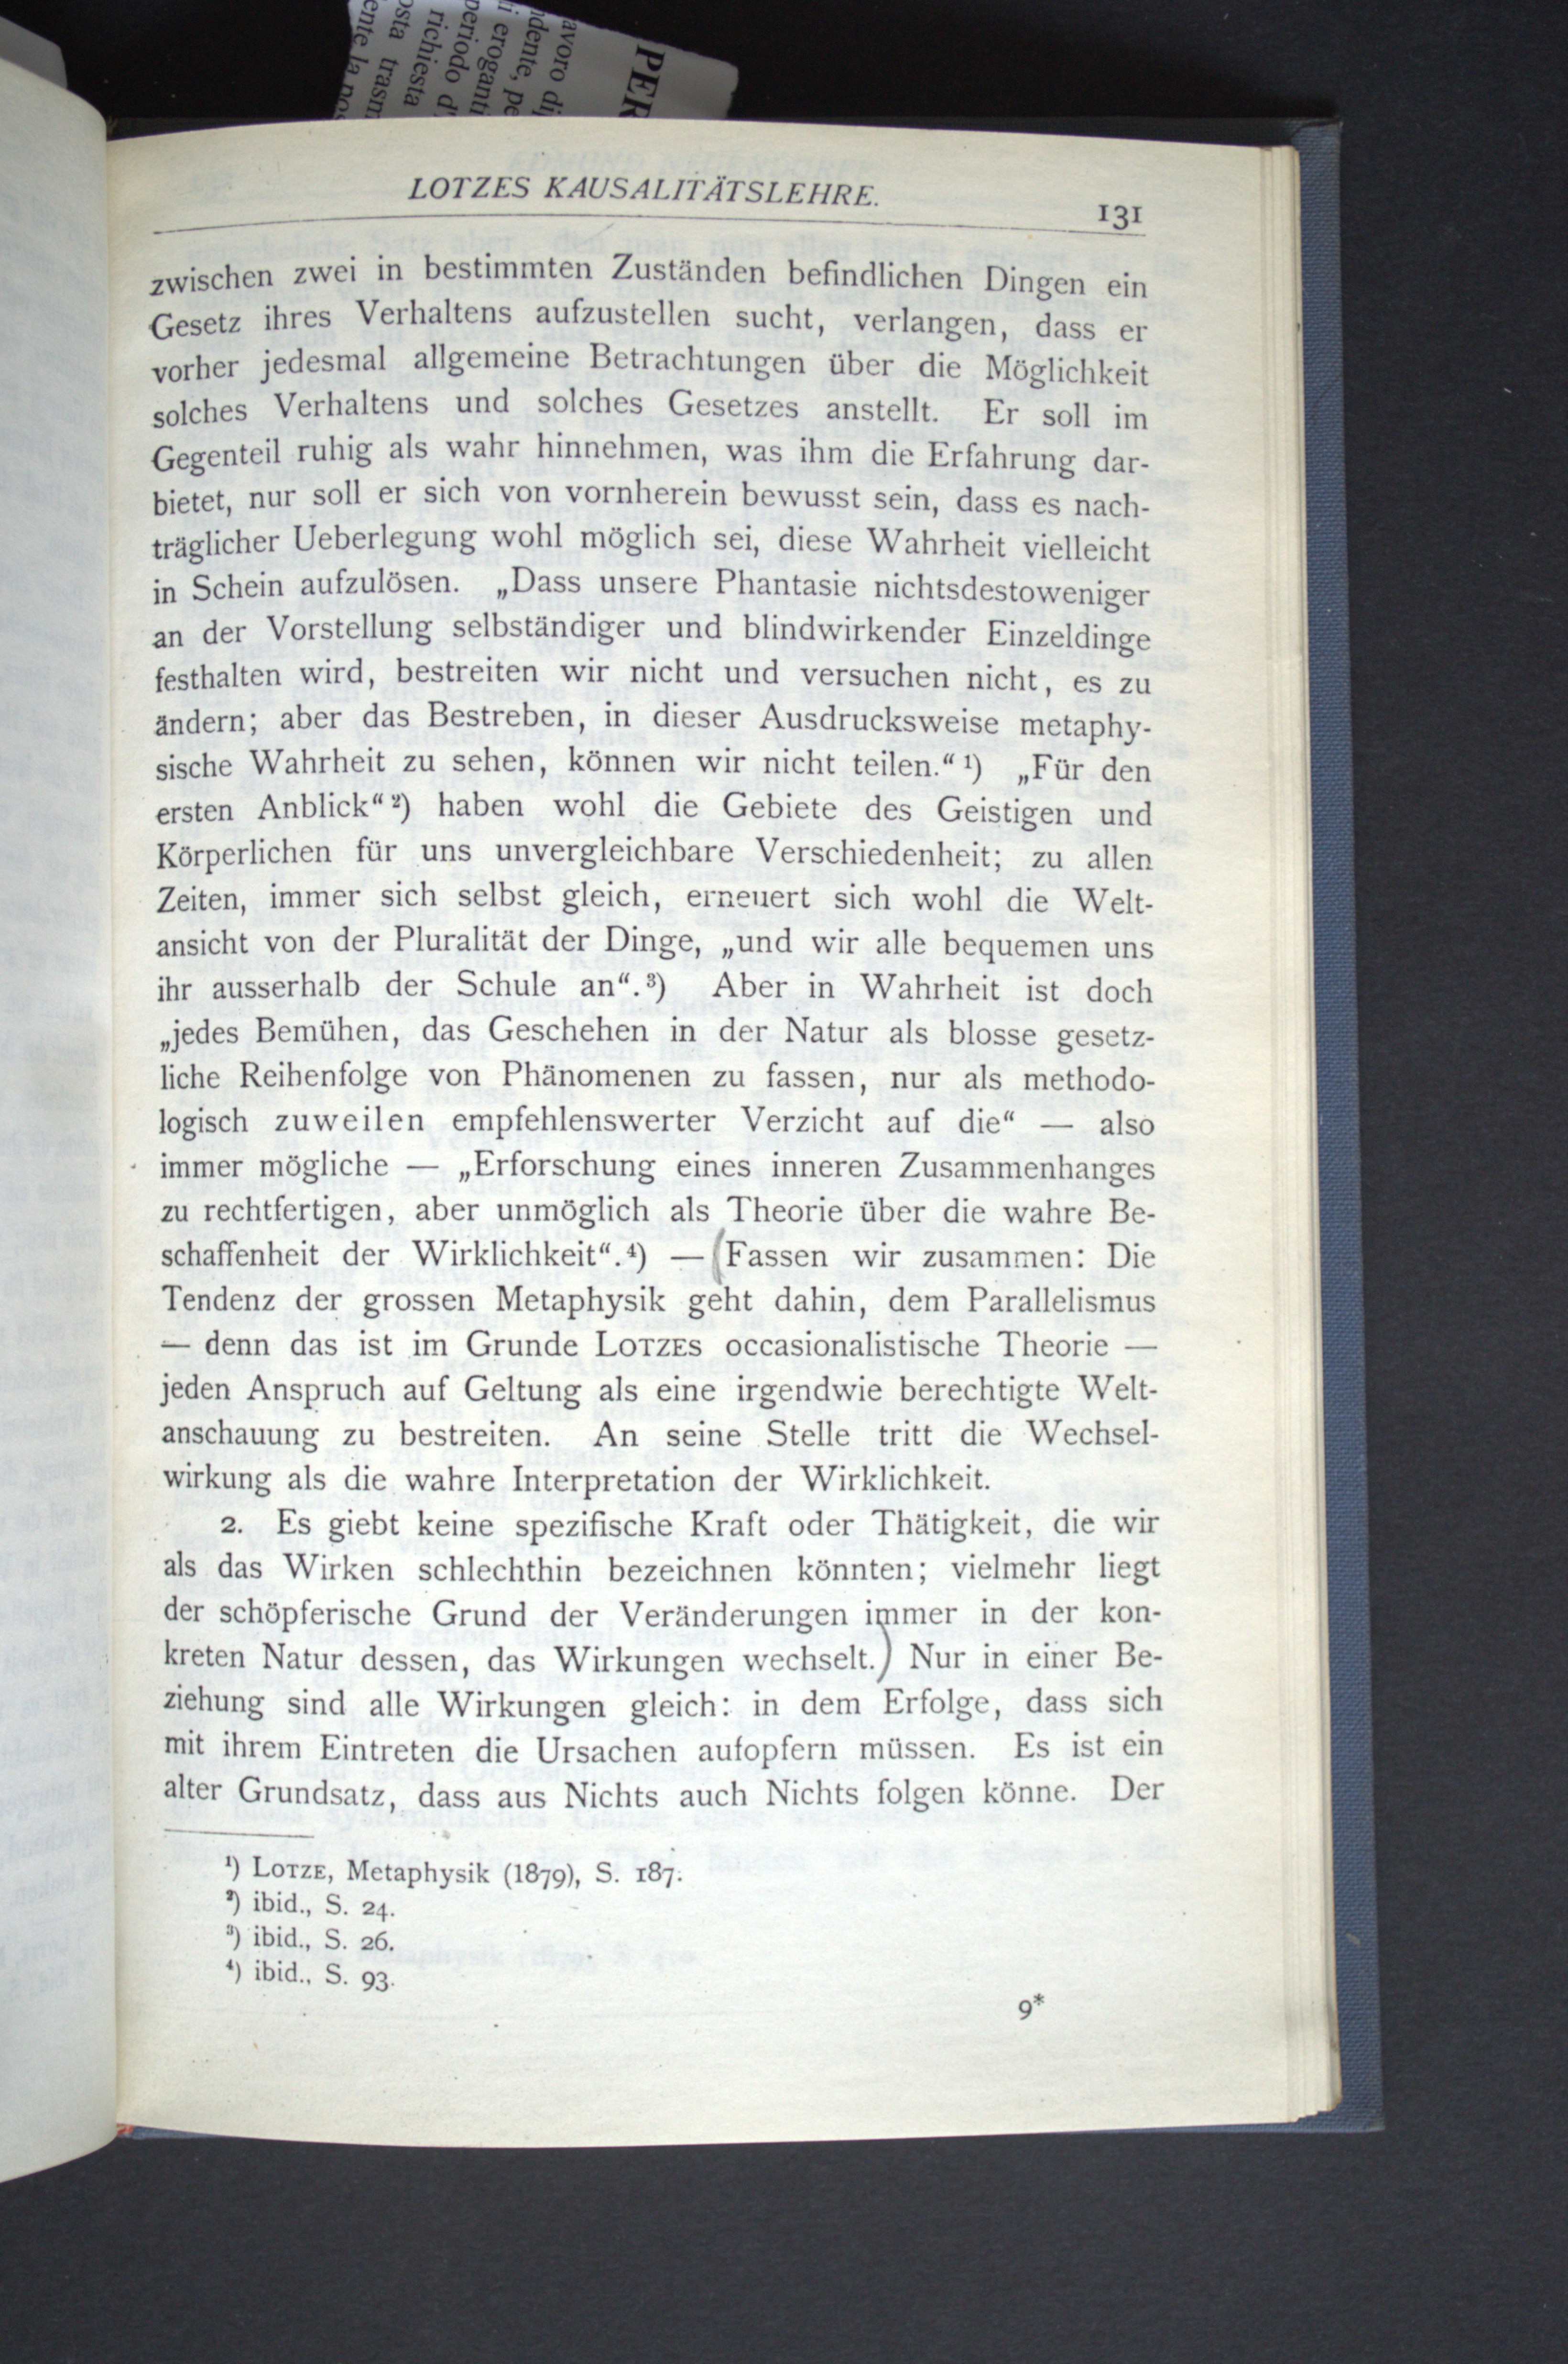 LOTZES KAUSALITÄTSLEHRE.
131
zwischen zwei in bestimmten Zuständen befindlichen Dingen ein
Gesetz ihres Verhaltens aufzustellen sucht, verlangen, dass er
vorher jedesmal allgemeine Betrachtungen über die Möglichkeit
solches Verhaltens und solches Gesetzes anstellt. Er soll im
Gegenteil ruhig als wahr hinnehmen, was ihm die Erfahrung dar-
bietet, nur soll er sich von vornherein bewusst sein, dass es nach-
träglicher Ueberlegung wohl möglich sei, diese Wahrheit vielleicht
in Schein aufzulösen. „Dass unsere Phantasie nichtsdestoweniger
an der Vorstellung selbständiger und blindwirkender Einzeldinge
festhalten wird, bestreiten wir nicht und versuchen nicht, es zu
ändern; aber das Bestreben, in dieser Ausdrucksweise metaphy-
sische Wahrheit zu sehen, können wir nicht teilen.“ ¹) „Für den
ersten Anblick“ ²) haben wohl die Gebiete des Geistigen und
Körperlichen für uns unvergleichbare Verschiedenheit; zu allen
Zeiten, immer sich selbst gleich, erneuert sich wohl die Welt-
ansicht von der Pluralität der Dinge, „und wir alle bequemen uns
ihr ausserhalb der Schule an“.³) Aber in Wahrheit ist doch
„jedes Bemühen, das Geschehen in der Natur als blosse gesetz-
liche Reihenfolge von Phänomenen zu fassen, nur als methodo-
logisch zuweilen empfehlenswerter Verzicht auf die“ — also
immer mögliche — „Erforschung eines inneren Zusammenhanges
zu rechtfertigen, aber unmöglich als Theorie über die wahre Be-
schaffenheit der Wirklichkeit“.⁴) — (Fassen wir zusammen: Die
Tendenz der grossen Metaphysik geht dahin, dem Parallelismus
— denn das ist im Grunde LOTZES occasionalistische Theorie —
jeden Anspruch auf Geltung als eine irgendwie berechtigte Welt-
anschauung zu bestreiten. An seine Stelle tritt die Wechsel-
wirkung als die wahre Interpretation der Wirklichkeit.
2. Es giebt keine spezifische Kraft oder Thätigkeit, die wir
als das Wirken schlechthin bezeichnen könnten; vielmehr liegt
der schöpferische Grund der Veränderungen immer in der kon-
kreten Natur dessen, das Wirkungen wechselt.) Nur in einer Be-
ziehung sind alle Wirkungen gleich: in dem Erfolge, dass sich
mit ihrem Eintreten die Ursachen aufopfern müssen. Es ist ein
alter Grundsatz, dass aus Nichts auch Nichts folgen könne. Der
¹) LOTZE, Metaphysik (1879), S. 187.
²) ibid., S. 24.
³) ibid., S. 26.
⁴) ibid., S. 93.
9*
PER
avoro di
dente, pe
i eroganti
periodo d
richiesta
osta trasm
ente la pos